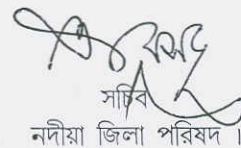 সচিব
নদীয়া জিলা পরিষদ ।